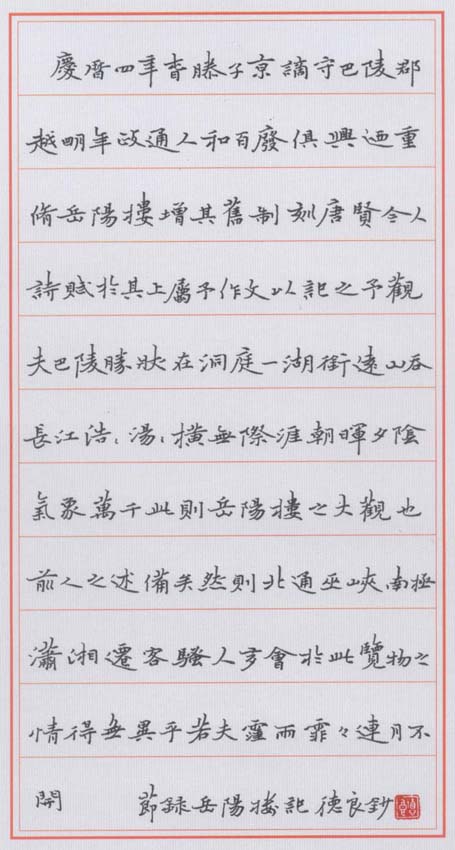 慶曆四年春滕子京謫守巴陵郡
越明年政通人和百廢俱興迺重
脩岳陽樓增其舊制刻唐賢今人
詩賦於其上屬予作文以記之予觀
夫巴陵勝狀在洞庭一湖銜遠山吞
長江浩〻湯〻橫無際涯朝暉夕陰
氣象萬千此則岳陽樓之大觀也
前人之述備矣然則北通巫峽南極
瀟湘遷客騷人多會於此覽物之
情得無異乎若夫霪雨霏々連月不
開 節錄岳陽樓記 德良鈔